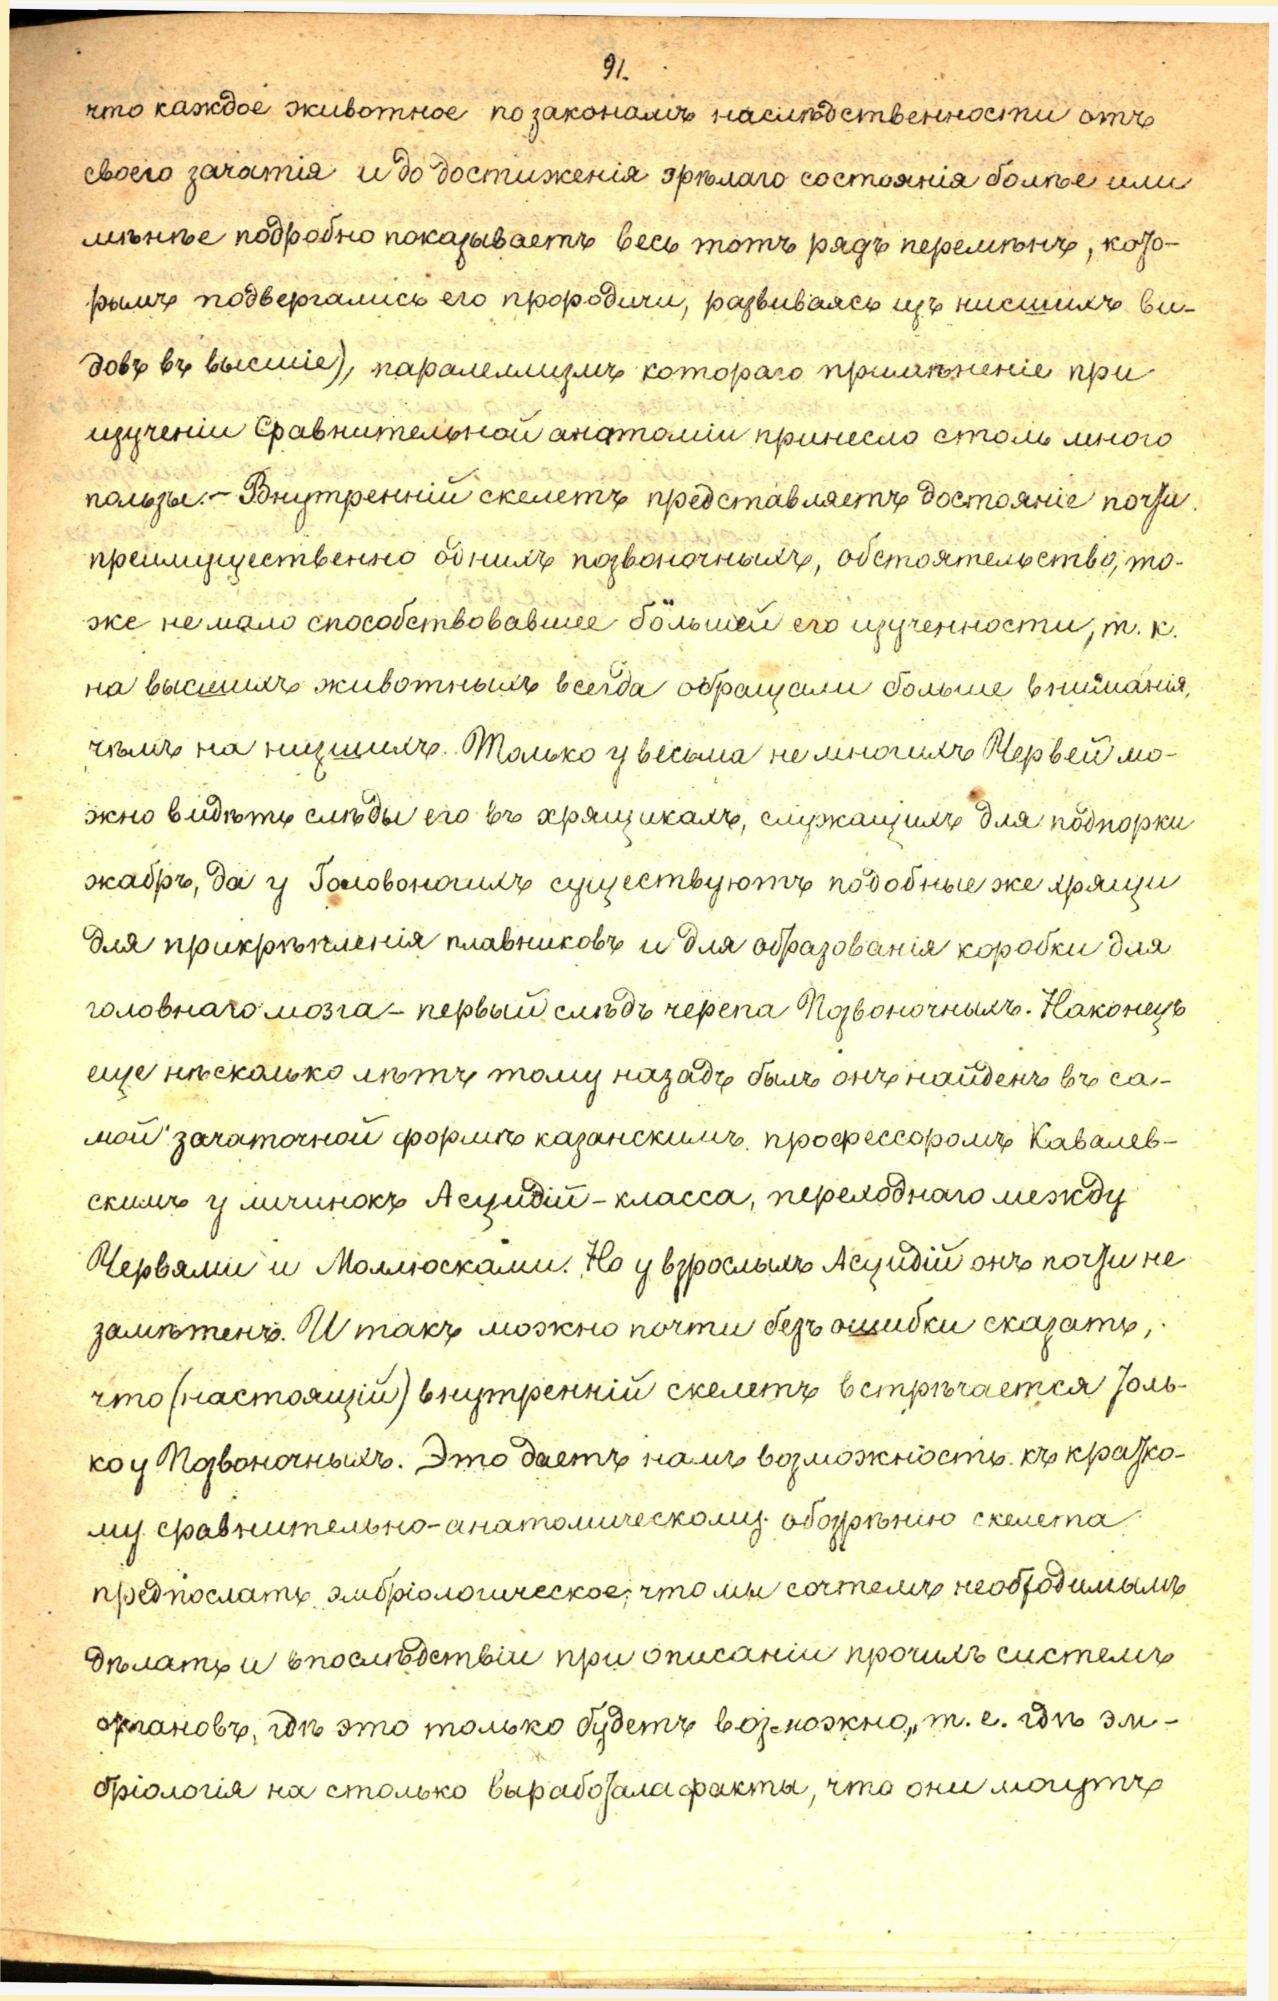 91.
что каждое животное по законамъ наслѣдственности отъ
своего зачатія и до достиженія зрѣлаго состоянія болѣе или
мѣнѣе подробно показываетъ весь тотъ рядъ перемѣнъ, кото-
рымъ подвергались его прородичи, развиваясь изъ нисшихъ ви-
довъ въ высшіе), паралеллизмъ котораго примѣненіе при
изученіи Сравнительной анатоміи принесло столь много
пользы. – Внутренній скелетъ представляетъ достояніе почти
преимущественно однихъ позвоночныхъ, обстоятельство, то-
же не мало способствовавшее большей его изученности, т. к.
на высшихъ животныхъ всегда обращали больше вниманія,
чѣмъ на низшихъ. Только у весьма не многихъ Червей мо-
жно видѣть слѣды его въ хрящикахъ, служащихъ для подпорки
жабръ, да у Головоногихъ существуютъ подобные же хрящи
для прикрѣпленія плавниковъ и для образованія коробки для
головнаго мозга – первый слѣдъ черепа Позвоночныхъ. Наконецъ
еще нѣсколько лѣтъ тому назадъ былъ онъ найденъ въ са-
мой зачаточной формѣ казанскимъ профессоромъ Кавалев-
скимъ у личинокъ Асцидій – класса, переходнаго между
Червями и Моллюсками. Но у взрослыхъ Асцидій онъ почти не
замѣтенъ. И такъ можно почти безъ ошибки сказать,
что (настоящій) внутренній скелетъ встрѣчается толь-
ко у Позвоночныхъ. Это даетъ намъ возможность къ кратко-
му сравнительно-анатомическому обозрѣнію скелета
предпослать эмбріологическое, что мы сочтемъ необходимымъ
дѣлать и впослѣдствіи при описаніи прочихъ системъ
органовъ, гдѣ это только будетъ возможно, т. е. гдѣ эм-
бріологія на столько выработала факты, что они могутъ